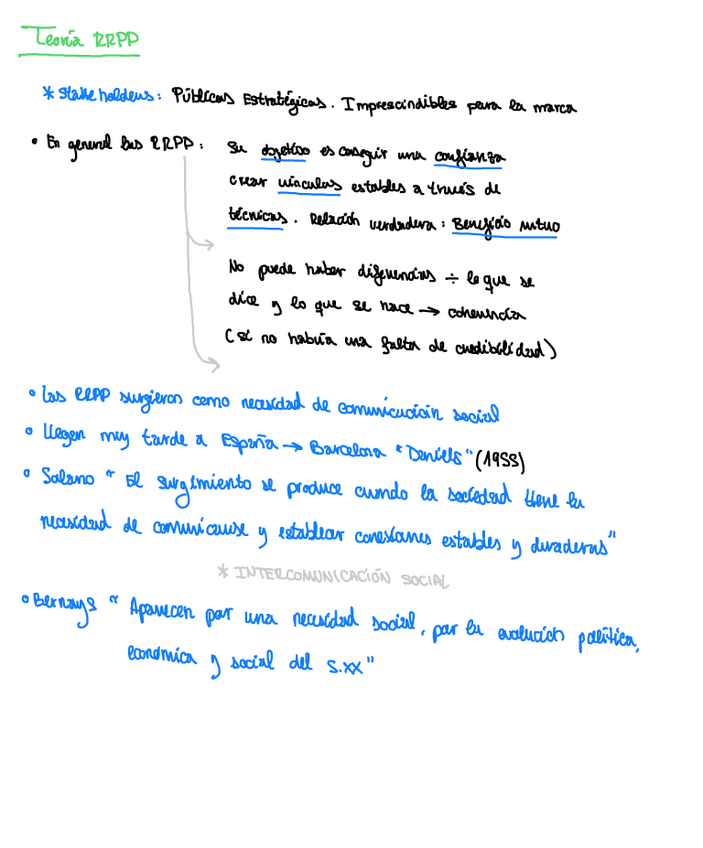 Teoría RRPP
* Stakeholders: Públicos Estratégicos. Imprescindibles para la marca
• En general las RRPP: Su objetivo es conseguir una confianza
crear vínculos estables a través de
técnicas. Relación verdadera: Beneficio mutuo
No puede haber diferencias ÷ lo que se
dice y lo que se hace → coherencia
(si no habría una falta de credibilidad)
• Las RRPP surgieron como necesidad de comunicación social
• Llegan muy tarde a España → Barcelona "Daniels" (1953)
• Solano " El surgimiento se produce cuando la sociedad tiene la
necesidad de comunicarse y establecer conexiones estables y duraderas"
* INTERCOMUNICACIÓN SOCIAL
• Bernays " Aparecen por una necesidad social, por la evolución política,
económica y social del S.XX"